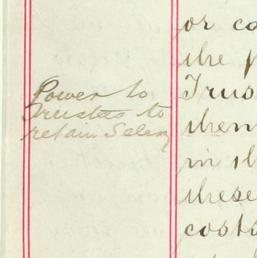 or co
the p
Power to
Trustees to
retain Salary
Trus
them
in th
these
costs